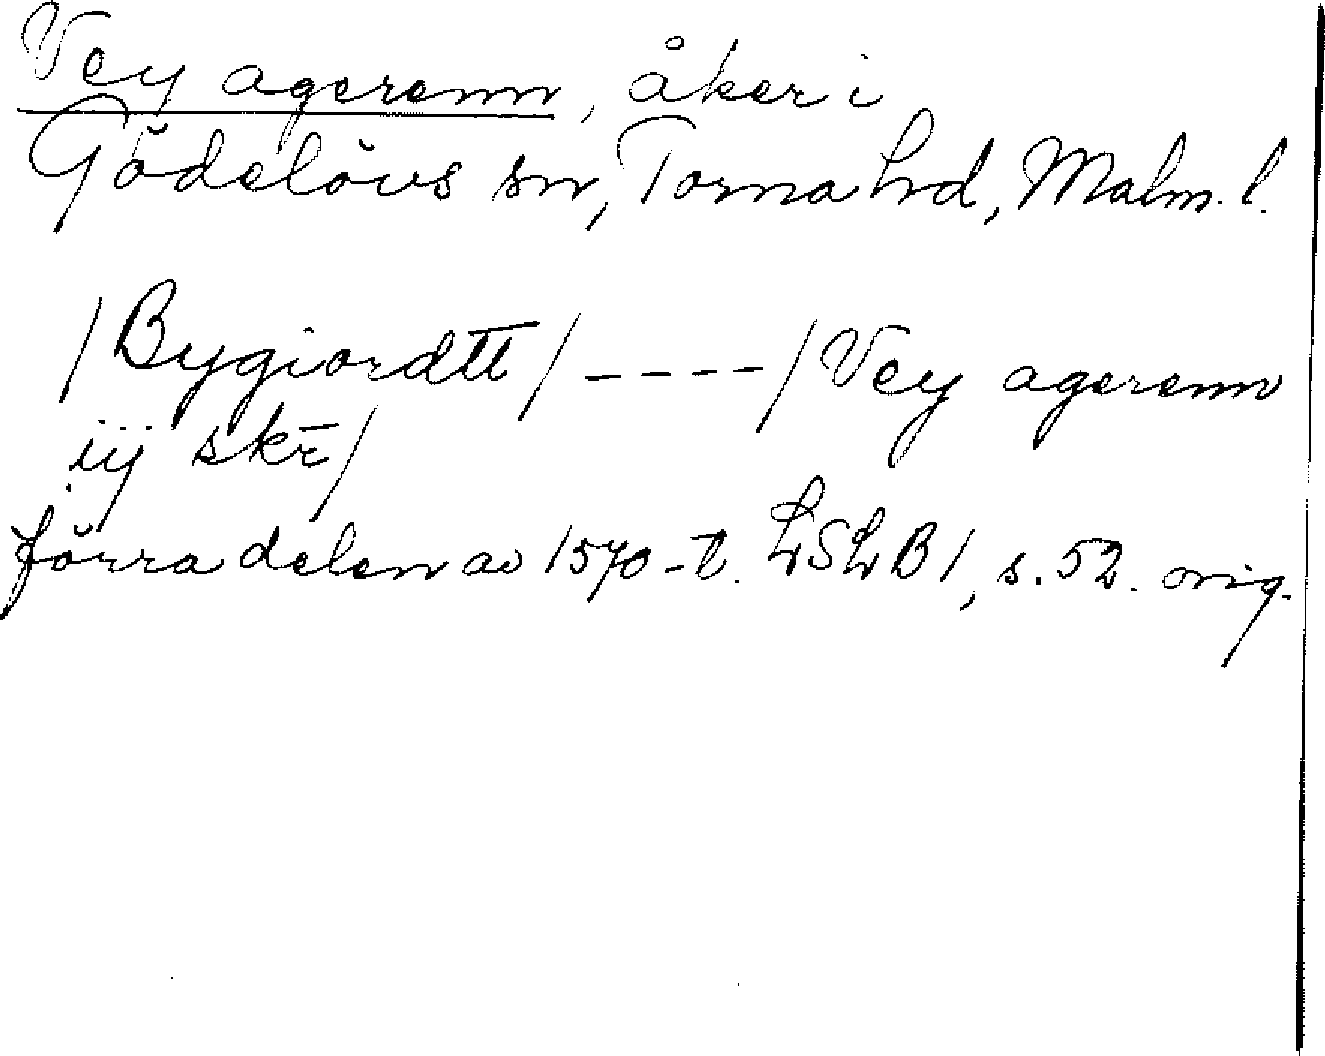 Vey agerenn, åker i
Gödelövs sn, Torna hd, Malm. l.
/Bygiordtt/----/Vey agerenn
iij skr̄/
förra delen av 1570-t. LSLB1, s.52. orig.